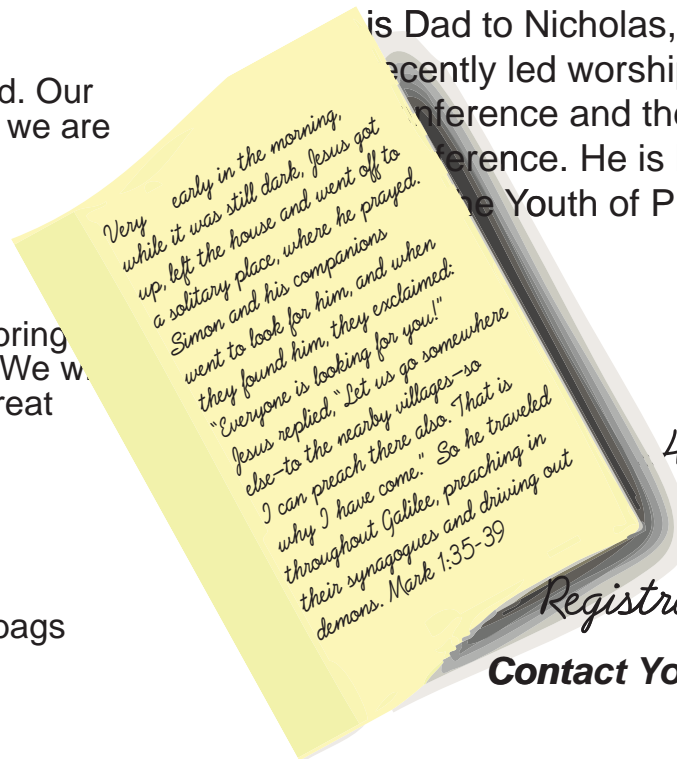 is Dad to Nicholas,
ecently led worship
nference and the
ference. He is
he Youth of P
d. Our
we are
oring
We w
reat
bags
Very early in the morning,
while it was still dark, Jesus got
up, left the house and went off to
a solitary place, where he prayed.
Simon and his companions
went to look for him, and when
they found him, they exclaimed:
"Everyone is looking for you!"
Jesus replied, "Let us go somewhere
else–to the nearby villages–so
I can preach there also. That is
why I have come." So he traveled
throughout Galilee, preaching in
their synagogues and driving out
demons. Mark 1:35-39
Registr
Contact Yo